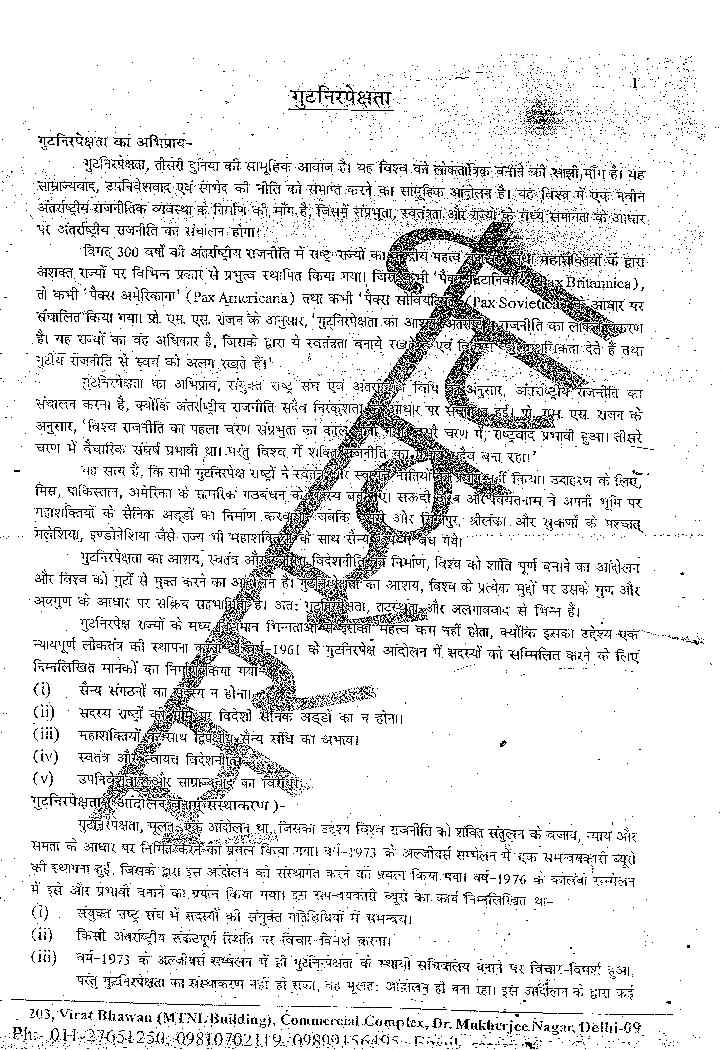 1
गुटनिरपेक्षता
गुटनिरपेक्षता का अभिप्राय-
गुटनिरपेक्षता, तीसरी दुनिया की सामूहिक आवाज है। यह विश्व को लोकतांत्रिक बनाने की साझी माँग है। यह
साम्राज्यवाद, उपनिवेशवाद एवं रंगभेद की नीति को समाप्त करने का सामूहिक आंदोलन है। यह विश्व में एक नवीन
अंतर्राष्ट्रीय राजनीतिक व्यवस्था के निर्माण की माँग है, जिसमें संप्रभुता, स्वतंत्रता और राज्यों के मध्य समानता के आधार
पर अंतर्राष्ट्रीय राजनीति का संचालन होगा।
विगत् 300 वर्षों की अंतर्राष्ट्रीय राजनीति में राष्ट्र-राज्यों का महत्व महाशक्तियों के द्वारा
अशक्त राज्यों पर विभिन्न प्रकार से प्रभुत्व स्थापित किया गया। कभी 'पैक्स ब्रिटानिका' (Pax Britannica),
तो कभी 'पैक्स अमेरिकाना' (Pax Americana) तथा कभी 'पैक्स सोवियतिका' (Pax Sovietica) के आधार पर
संचालित किया गया। प्रो. एम. एस. राजन के अनुसार, 'गुटनिरपेक्षता का आशय अंतर्राष्ट्रीय राजनीति का लोकतंत्रीकरण
है। यह राज्यों का वह अधिकार है, जिसके द्वारा ये स्वतंत्रता बनाये रखते एवं देते हैं तथा
गुटीय राजनीति से स्वयं को अलग रखते हैं।'
गुटनिरपेक्षता का अभिप्राय, संयुक्त राष्ट्र संघ एवं अंतर्राष्ट्रीय विधि अनुसार, अंतर्राष्ट्रीय राजनीति का
संचालन करना है, क्योंकि अंतर्राष्ट्रीय राजनीति सदैव निरंकुशता आधार पर संचालित हुई। प्रो. एम. एस. राजन के
अनुसार, 'विश्व राजनीति का पहला चरण संप्रभुता का काल चरण में, राष्ट्रवाद प्रभावी हुआ। तीसरे
चरण में वैचारिक संघर्ष प्रभावी था। परंतु विश्व में शक्ति राजनीति का सदैव बना रहा।'
यह सत्य है, कि सभी गुटनिरपेक्ष राष्ट्रों ने स्वतंत्र और नीतियों नहीं किया। उदाहरण के लिए,
मिस्र, पाकिस्तान, अमेरिका के सामरिक गठबंधन के सदस्य सऊदी अरब और वियतनाम ने अपनी भूमि पर
महाशक्तियों के सैनिक अड्डों का निर्माण जबकि और सिंगापुर, श्रीलंका और सुकर्णो के पश्चात्
मलेशिया, इण्डोनेशिया जैसे राज्य भी महाशक्तियों के साथ सैन्य बंध गये।
गुटनिरपेक्षता का आशय, स्वतंत्र और विदेशनीति निर्माण, विश्व को शांति पूर्ण बनाने का आंदोलन
और विश्व को गुटों से मुक्त करने का आंदोलन है। गुटनिरपेक्षता का आशय, विश्व के प्रत्येक मुद्दों पर उसके गुण और
अवगुण के आधार पर सक्रिय सहभागिता है। अतः गुटनिरपेक्षता, तटस्थता और अलगाववाद से भिन्न है।
गुटनिरपेक्ष राज्यों के मध्य विद्यमान भिन्नताओं महत्व कम नहीं होता, क्योंकि इसका उद्देश्य एक
न्यायपूर्ण लोकतंत्र की स्थापना वर्ष-1961 के गुटनिरपेक्ष आंदोलन में सदस्यों को सम्मिलित करने के लिए
निम्नलिखित मानकों का निर्माण किया गया-
(i) सैन्य संगठनों का सदस्य न होना।
(ii) सदस्य राष्ट्रों की भूमि पर विदेशी सैनिक अड्डों का न होना।
(iii) महाशक्तियों के साथ द्विपक्षीय सैन्य संधि का अभाव।
(iv) स्वतंत्र और स्वायत्त विदेशनीति।
(v) उपनिवेशवाद और साम्राज्यवाद का विरोध।
गुटनिरपेक्षता ( आंदोलन संस्थाकरण )-
गुटनिरपेक्षता, मूलतः एक आंदोलन था, जिसका उद्देश्य विश्व राजनीति को शक्ति संतुलन के बजाय, न्याय और
समता के आधार पर निर्मित करने का प्रयत्न किया गया। वर्ष-1973 के अल्जीयर्स सम्मेलन में एक समन्वयकारी ब्यूरो
की स्थापना हुई, जिसके द्वारा इस आंदोलन को संस्थागत करने का प्रयत्न किया गया। वर्ष-1976 के कोलंबो सम्मेलन
में इसे और प्रभावी बनाने का प्रयत्न किया गया। इस समन्वयकारी ब्यूरो का कार्य निम्नलिखित था-
(i) संयुक्त राष्ट्र संघ में सदस्यों की संयुक्त गतिविधियों में समन्वय।
(ii) किसी अंतर्राष्ट्रीय संकटपूर्ण स्थिति पर विचार-विमर्श करना।
(iii) वर्ष-1973 के अल्जीयर्स सम्मेलन में ही गुटनिरपेक्षता के स्थायी सचिवालय बनाने पर विचार-विमर्श हुआ,
परंतु गुटनिरपेक्षता का संस्थाकरण नहीं हो सका, यह मूलतः आंदोलन ही बना रहा। इस आंदोलन के द्वारा कई
203, Virat Bhawan (MTNL Building), Commercial Complex, Dr. Mukherjee Nagar, Delhi-09
Ph:- 011-27651250, 09810702119, 09899156495